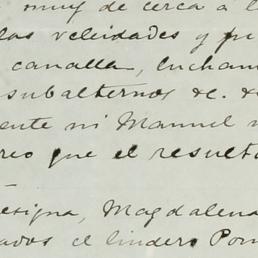 muy de cerca a l
las veleidades y pr
canalla, lucham
subalternos &c. &
ente ni Manuel n
reo que el result
esigna, Magdalena
ados el lindero Pom